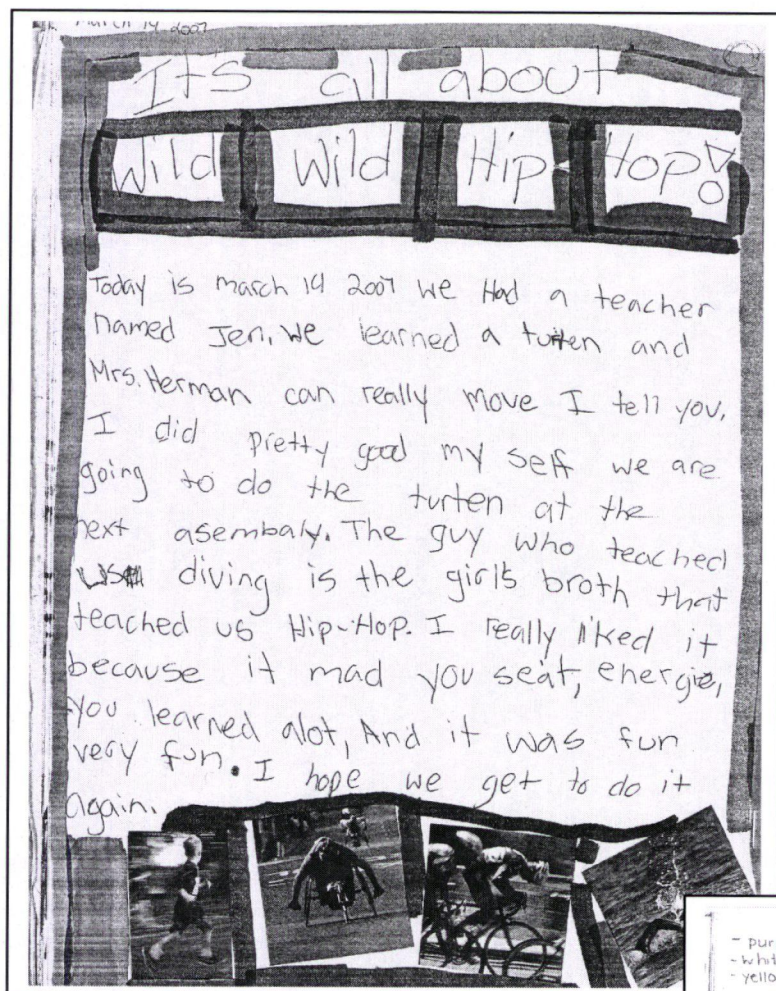 March 14 2007
It's all about
Wild Wild Hip-Hop!
Today is march 14 2007 we Had a teacher
named Jen. We learned a turten and
Mrs. Herman can really move I tell you.
I did pretty good my self we are
going to do the turten at the
next asembaly. The guy who teached
us diving is the girl's broth that
teached us Hip-Hop. I really liked it
because it mad you seat, energie,
you learned alot, And it was fun
very fun. I hope we get to do it
again.
- pur
- whit
- yello